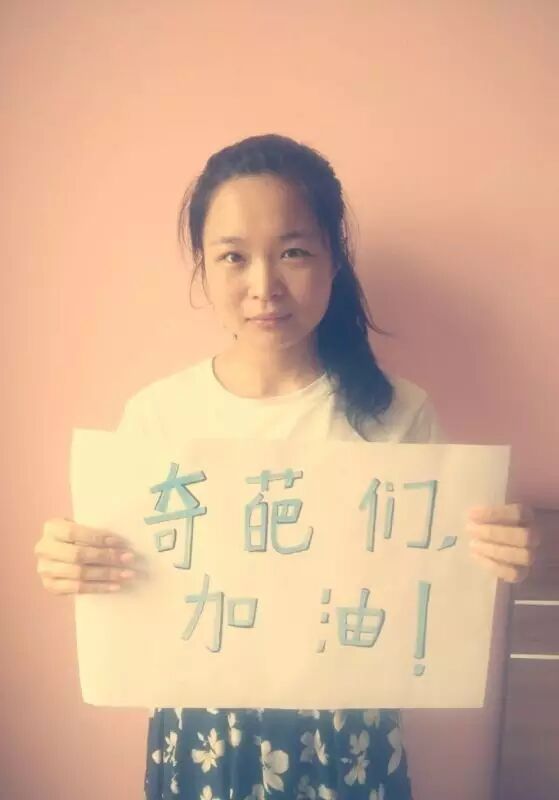 奇葩们,
加油!